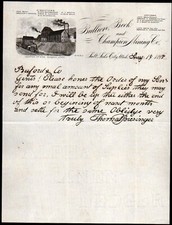 Bullion, Beck
and
Champion Mining Co.,
Salt Lake City, Utah, Aug 19 188
Buford & Co
Gents: Please honor the Order of my Son
for any small amount of Supplies they may
send for. I will be up this either the end
of this or beginning of next month
and settle for the same Oblidge very
truly